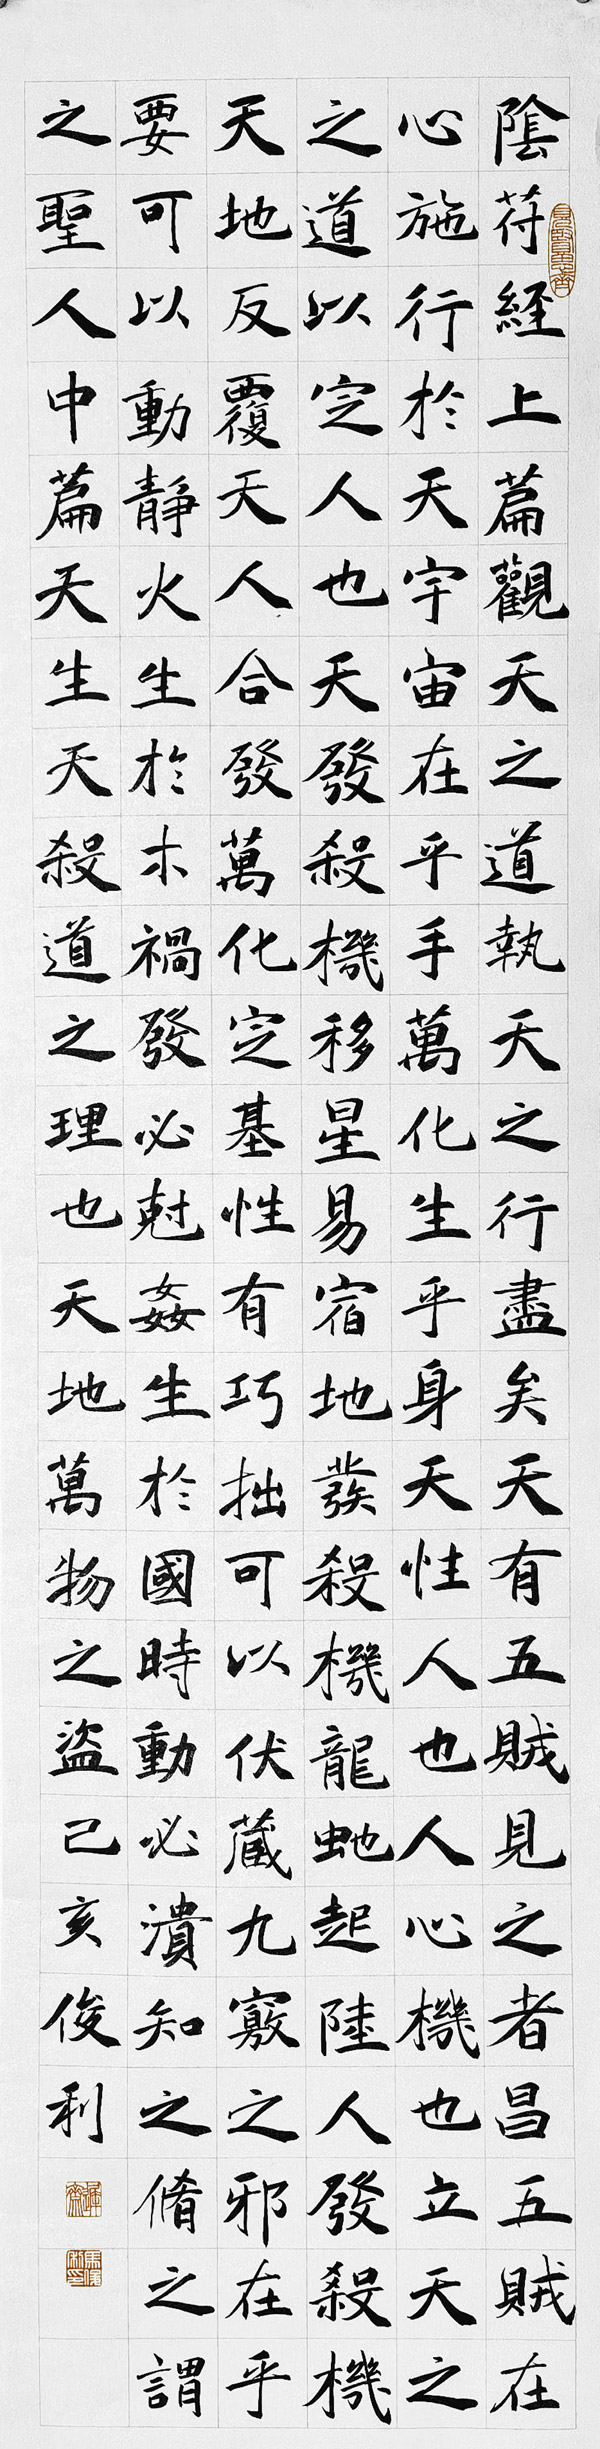 陰符經上篇觀天之道執天之行盡矣天有五賊見之者昌五賊在
心施行於天宇宙在乎手萬化生乎身天性人也人心機也立天之
之道以定人也天發殺機移星易宿地發殺機龍虵起陸人發殺機
天地反覆天人合發萬化定基性有巧拙可以伏藏九竅之邪在乎
要可以動靜火生於木禍發必尅姦生於國時動必潰知之脩之謂
之聖人中篇天生天殺道之理也天地萬物之盜己亥俊利